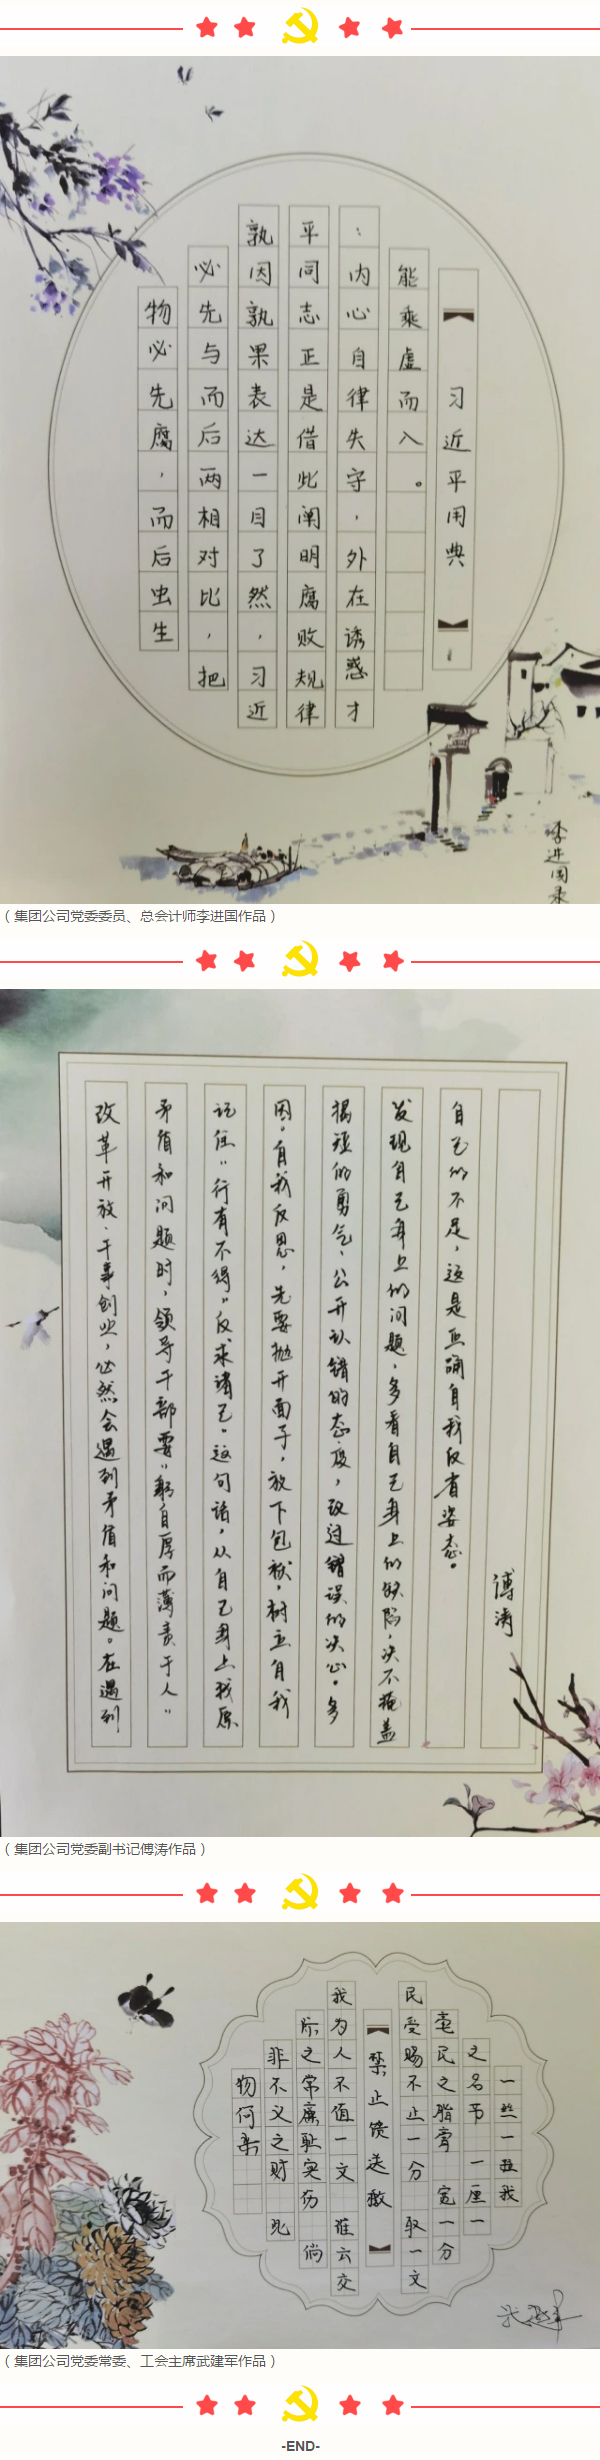 物必先腐，而后虫生
必先与而后两相对比，把
孰因孰果表达一目了然，习近
平同志正是借此阐明腐败规律
：内心自律失守，外在诱惑才
能乘虚而入。
【习近平用典】
李进国录
（集团公司党委委员、总会计师李进国作品）
改革开放、干事创业，必然会遇到矛盾和问题。在遇到
矛盾和问题时，领导干部要“躬自厚而薄责于人”
记住“行有不得”反求诸己。这句话，从自己身上找原
因。自我反思，先要抛开面子，放下包袱，树立自我
揭短的勇气、公开认错的态度，改过错误的决心。多
发现自己身上的问题，多看自己身上的缺陷，决不掩盖
自己的不足，这是正确自我反省姿态。
傅涛
（集团公司党委副书记傅涛作品）
一丝一粒我
之名节 一厘一
毫民之脂膏 宽一分
民受赐不止一分 取一文
【禁止馈送檄】
我为人不值一文 谁云交
际之常廉耻实伤 倘
非不义之财 此
物何来
武建军
（集团公司党委常委、工会主席武建军作品）
-END-